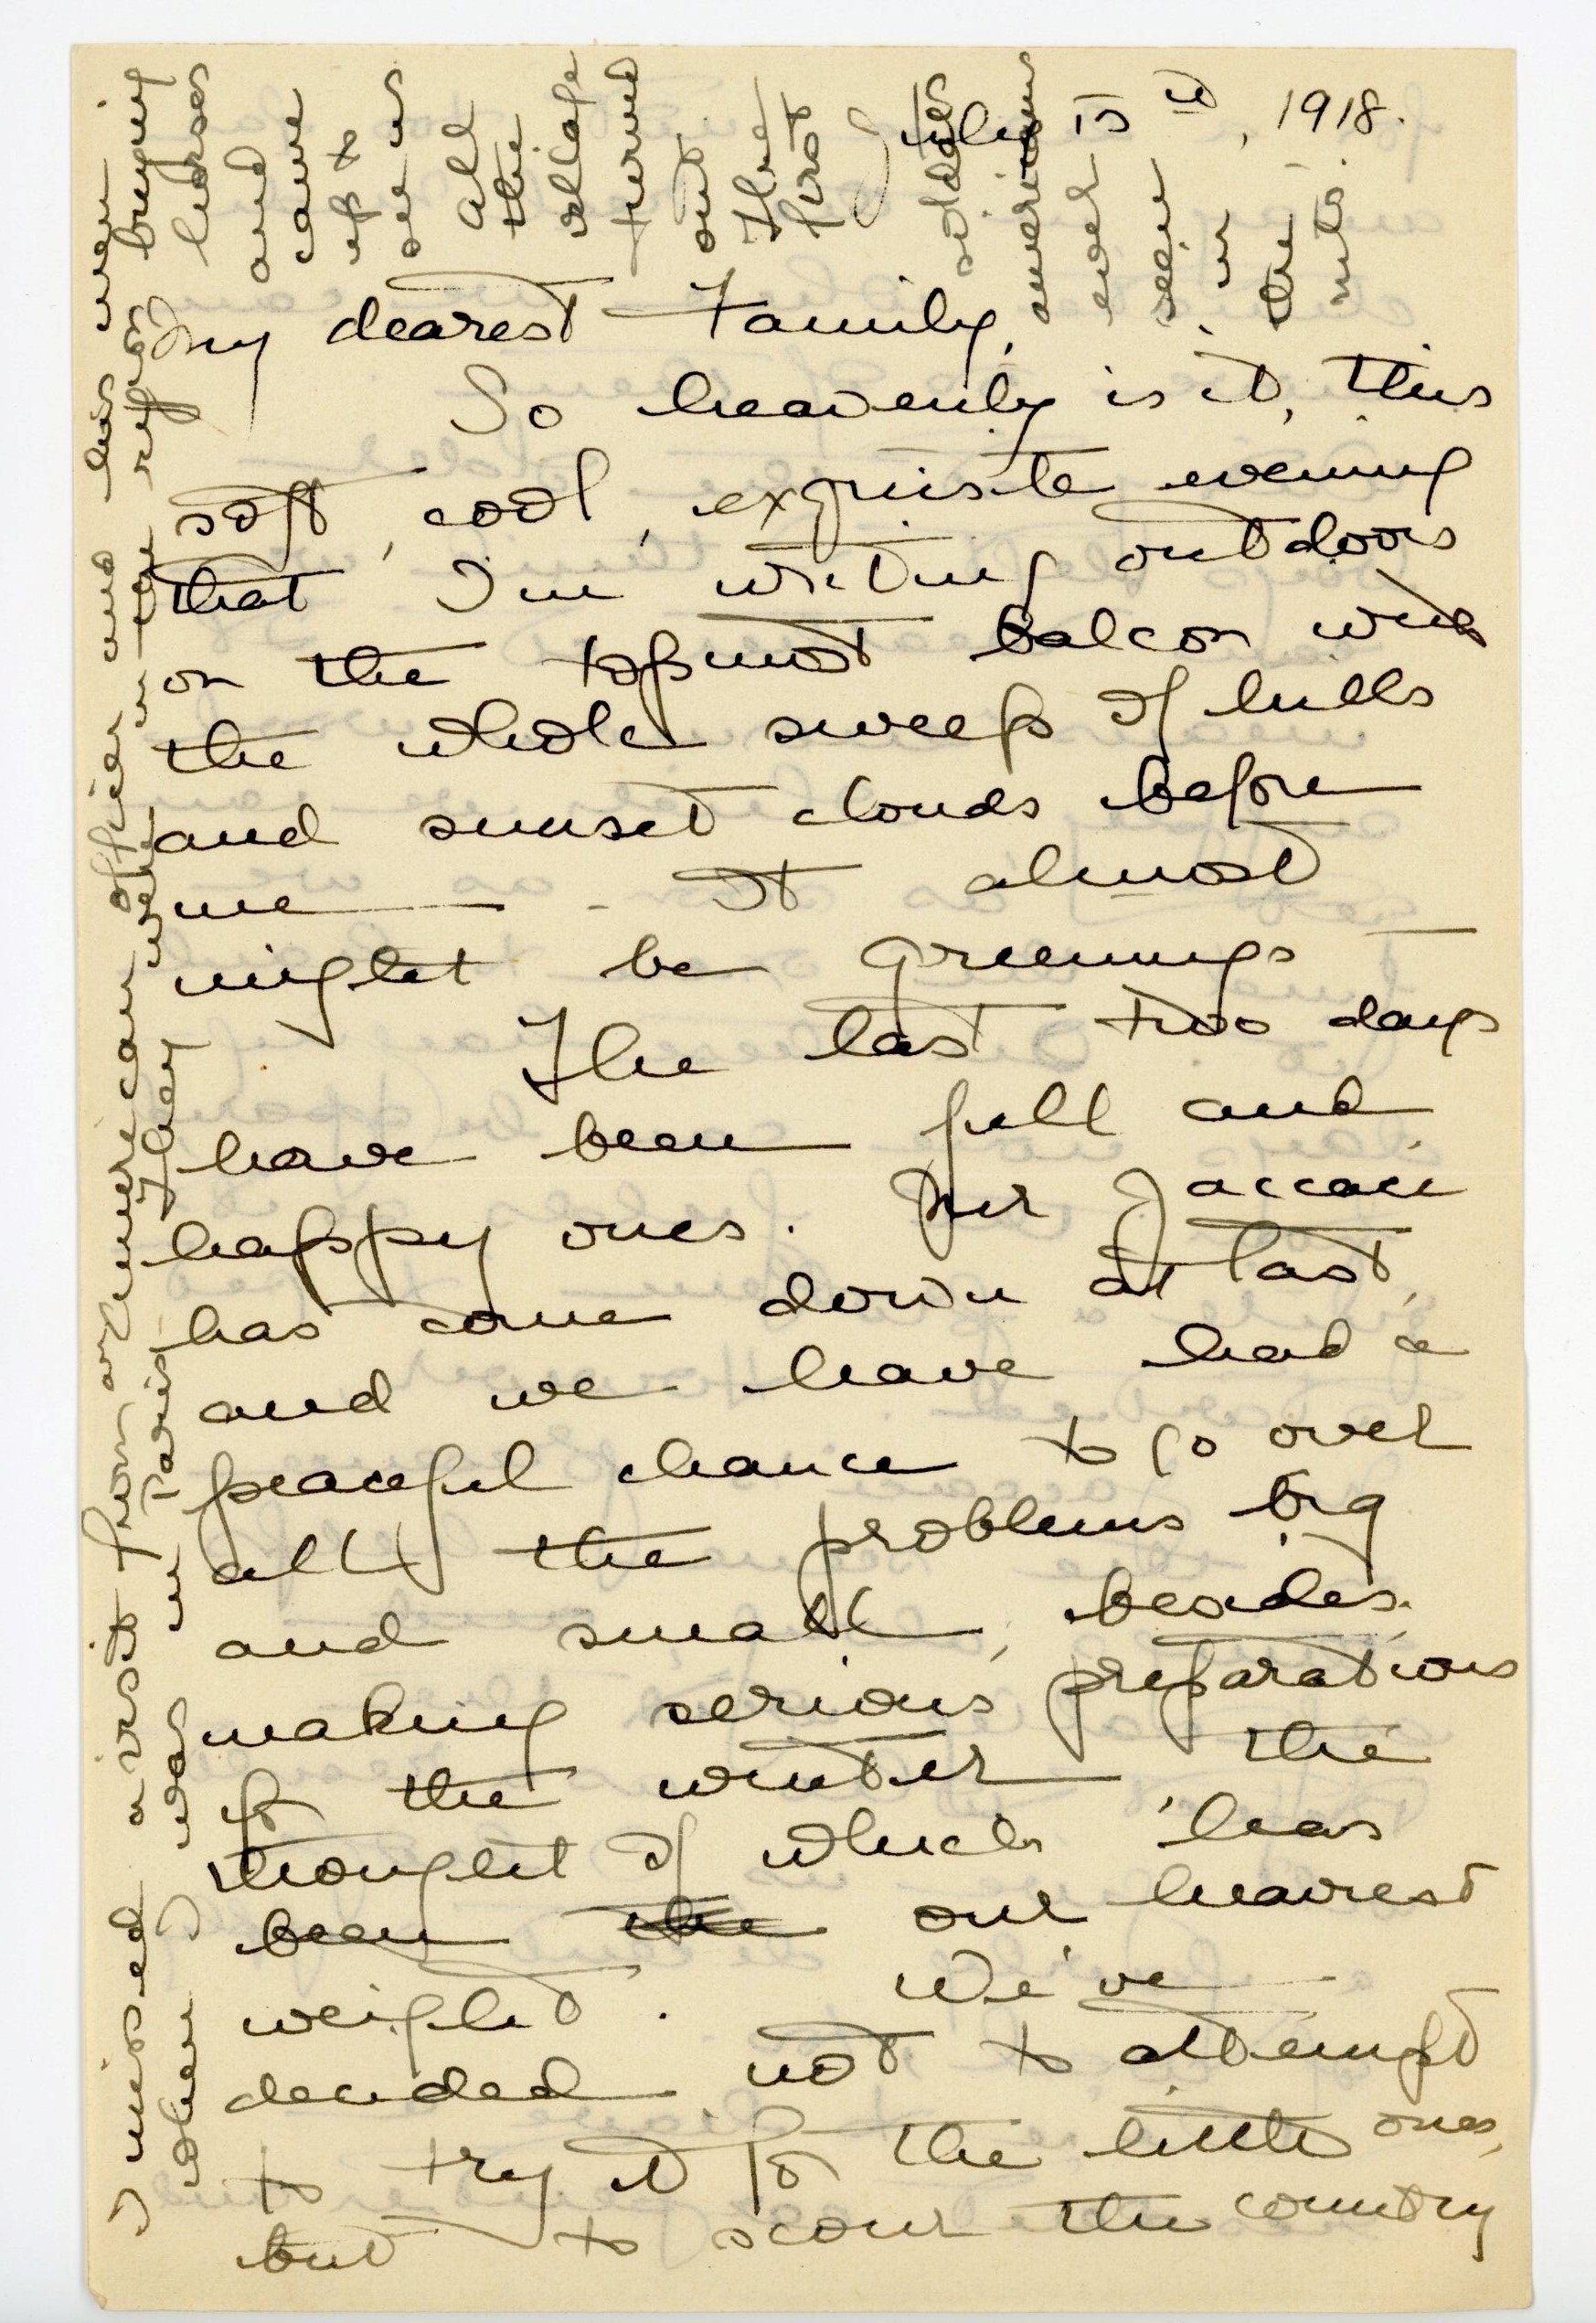 July 15th, 1918.
My dearest Family,
So heavenly is it, this
soft, cool, exquisite evening
that I'm writing outdoors
on the topmost balcon with
the whole sweep of hills
and sunset clouds before
me — - It almost
might be Greenings —
The last two days
have been full and
happy ones. Mr Jaccaci
has come down at last,
and we have had a
peaceful chance to go over
all the problems big
and small, besides
making serious preparations
for the winter — the
thought of which has
been the our heaviest
weight. We've
decided not to attempt
to try it for the little ones,
but to scour the country
I missed a visit from an American officer and his men
when I was in Paris. They were in the region buying
horses
and
came
up to
see us
All
the
village
turned
out.
The
first
American
soldiers
ever
seen
in
the
mts.